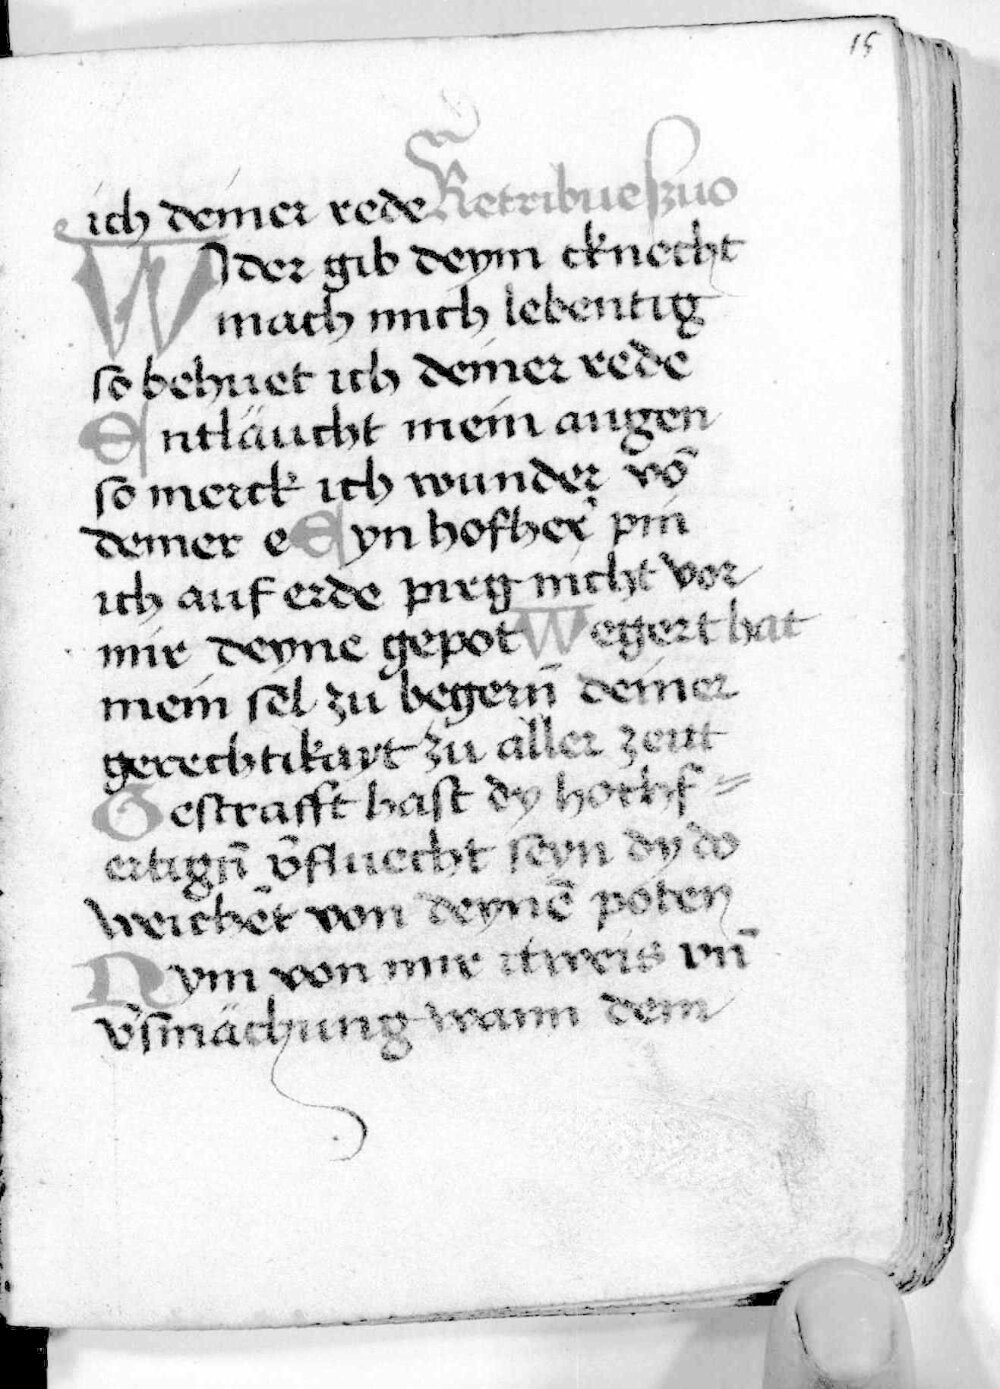 15
ich deiner rede Retribue szuo
Wider gib deym cknecht
mach mich lebentig
so behuet ich deiner rede
Entläucht mein augen
so merck ich wunder võ
deiner e Eyn hofher pin
ich auf erde pirg nicht vor
mir deyne gepot Wegert hat
mein sel zu begern̄ deiner
gerechtikayt zu aller zeut
Gestrafft hast dy hochf=
ertign̄ v̄fluecht seyn dy do
weichēt von deynē poten
Nym von mir itweis vn̄
v̄smächung wann dein